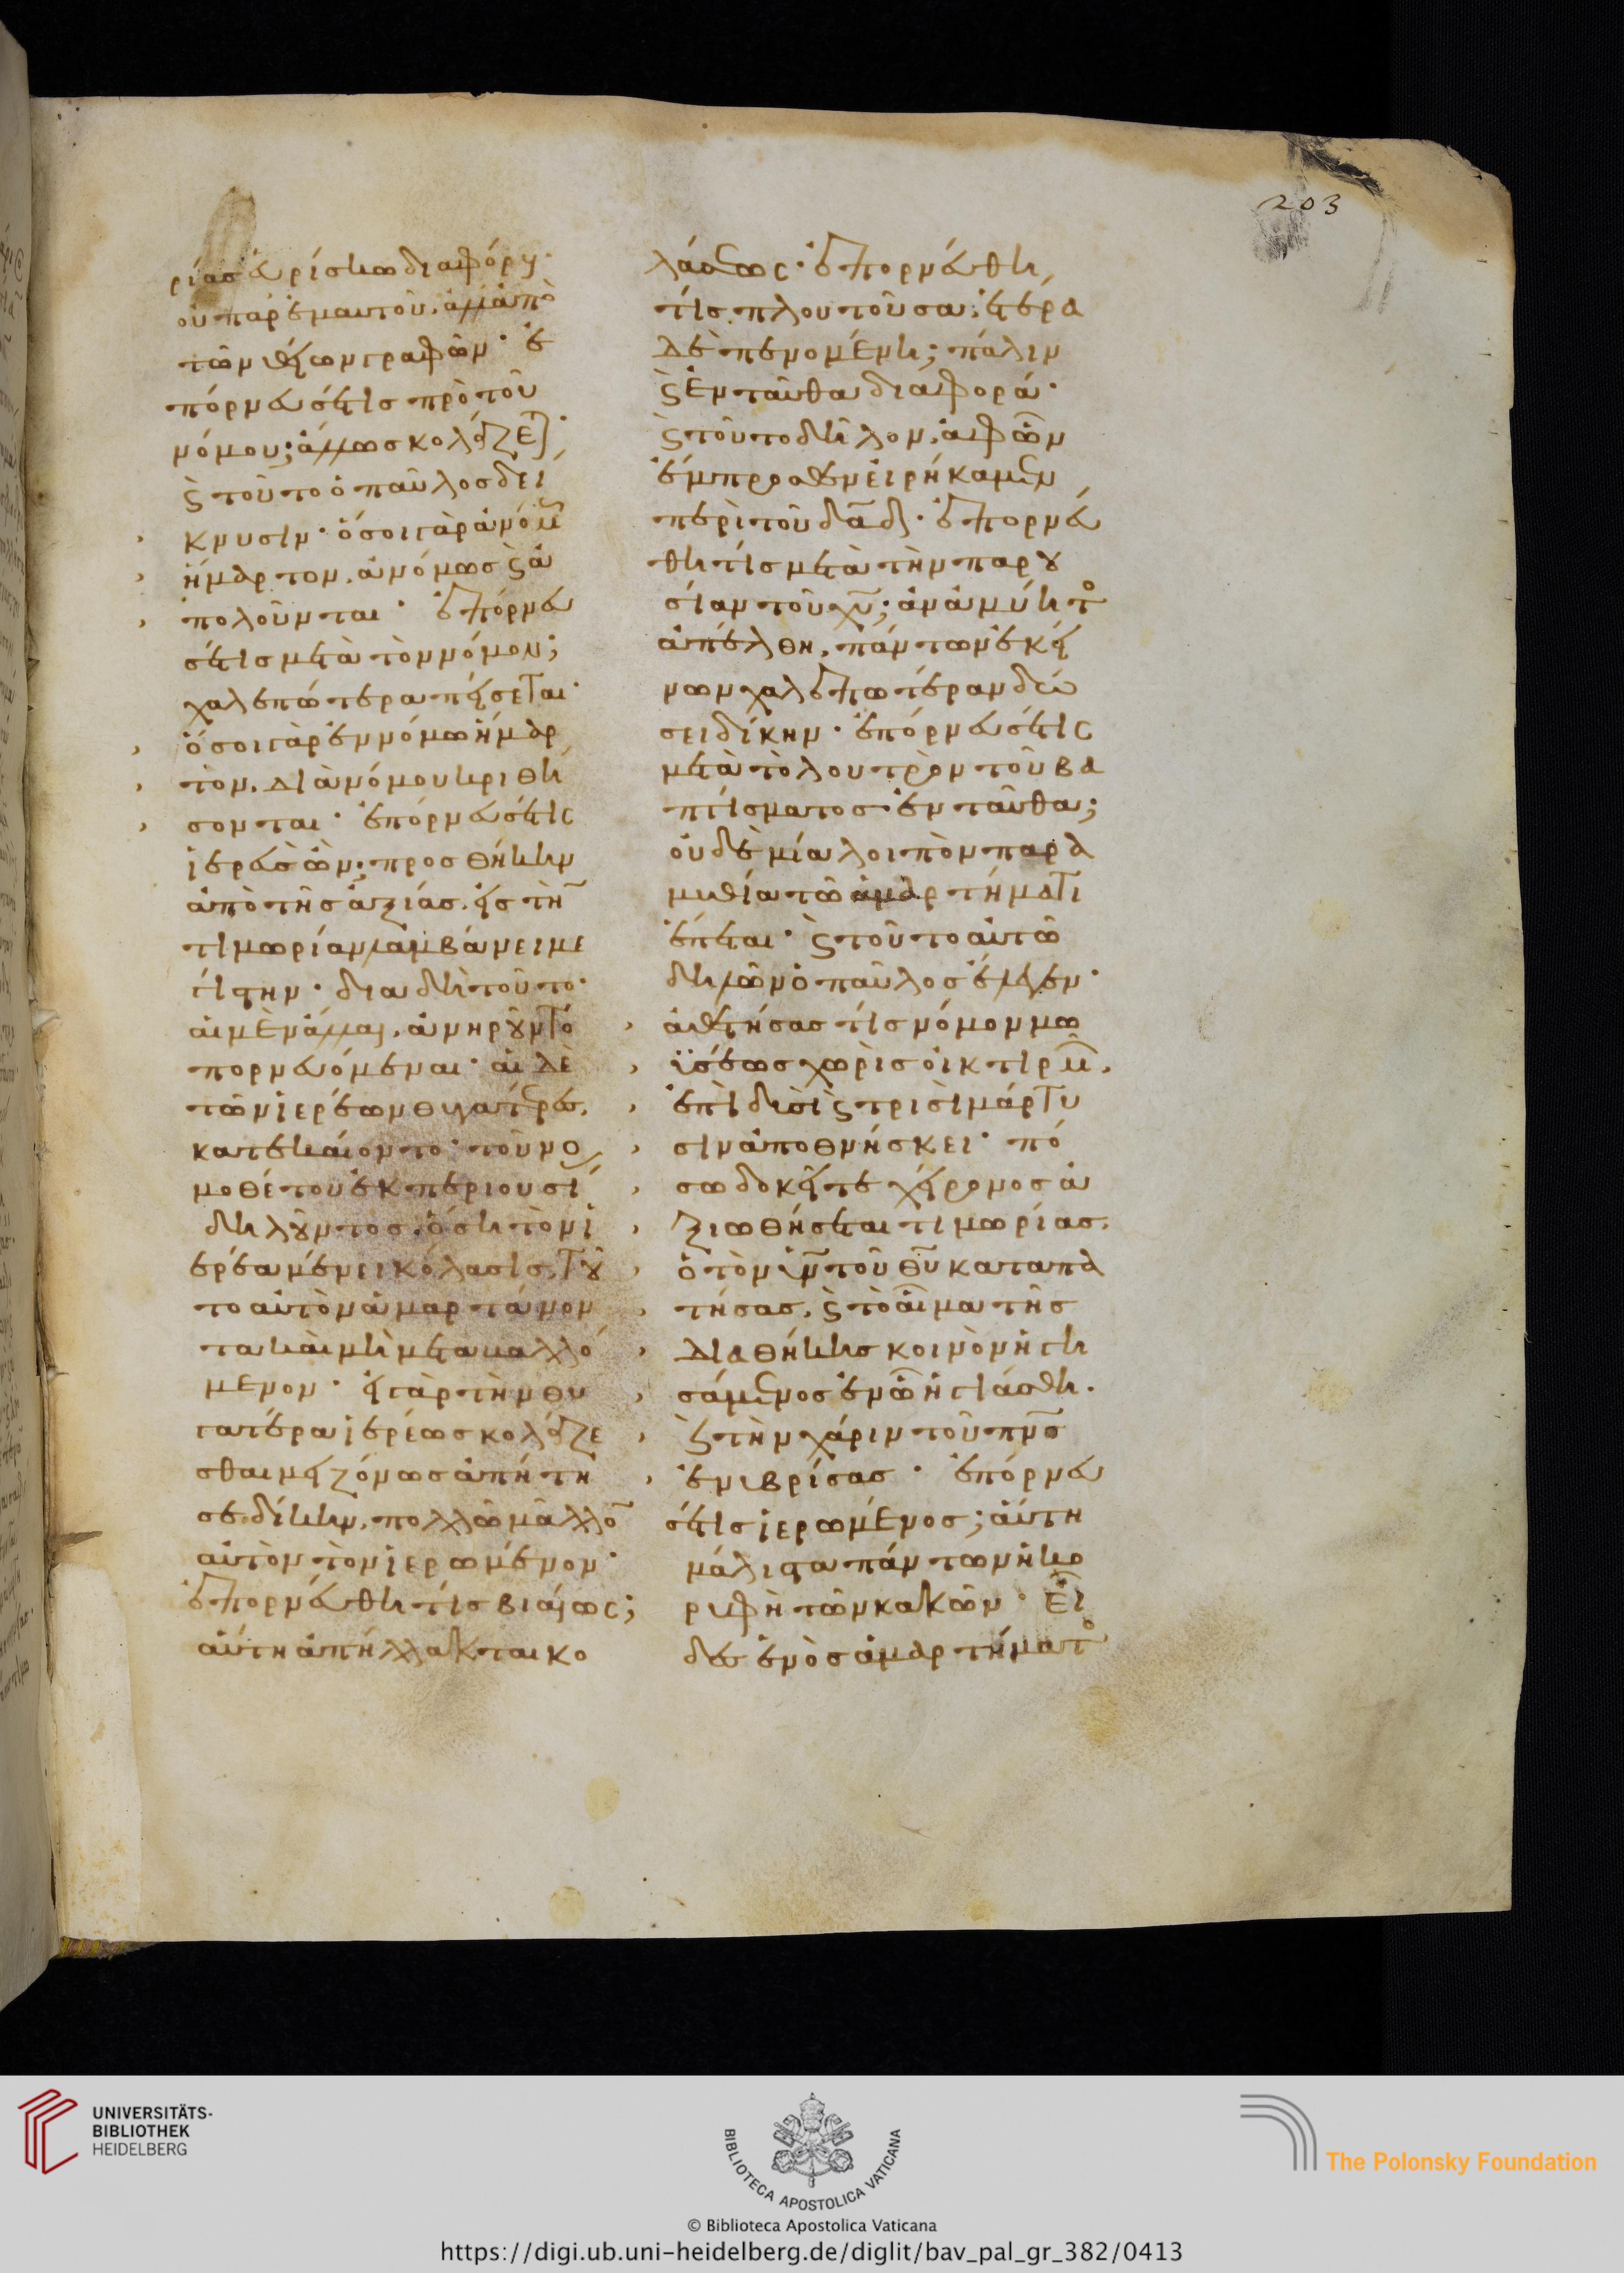 ρίας εὑρίσκω διαφόρου·
οὐ παρ' ἐμαυτοῦ. ἀλλ' ἀπὸ
τῶν θείων γραφῶν· ἐ
πόρνευσέ τις πρὸ τοῦ
νόμου; ἄλλως κολάζεται·
ϗ τοῦτο ὁ παῦλος δεί
κνυσιν· ὅσοι γὰρ ἀνόμως
ἥμαρτον. ἀνόμως ϗ ἀ
πολοῦνται· ἐπόρνευ
σέ τις μετὰ τὸν νόμον;
χαλεπώτερα πείσεται·
ὅσοι γὰρ ἐν νόμω ἥμαρ
τον. διὰ νόμου κριθή
σονται· ἐπόρνευσέ τις
ἱερεὺς ὤν; προσθήκην
ἀπὸ τῆς ἀξίας. εἰς τὴν
τιμωρίαν λαμβάνει με
γίστην· διὰ δὴ τοῦτο·
αἱ μὲν ἄλλαι. ἀνηροῦντο
πορνευόμεναι· αἱ δὲ
τῶν ἱερέων θυγατέρες.
κατεκαίοντο· τοῦ νο
μοθέτου ἐκ περιουσί
δηλοῦντος. ὅση τὸν ἱ
ερέα μένει κόλασις. τοῦ
το αὐτὸν ἁμαρτάνον
τα καὶ μὴ μεταβαλλό
μενον· εἰ γὰρ τὴν θυ
γατέρα ἱερέως κολάζε
σθαι μειζόνως ἀπήτη
σε δίκην. πολλῶ μᾶλλον
αὐτὸν τὸν ἱερωμένον·
ἐπορνεύθη τίς βιαίως;
αὕτη ἀπήλλακται κο
203
λάσεως· ἐπορνεύθη
τίς πλουτοῦσα; ἑτέρα
δὲ πενομένη; πάλιν
ϗ ἐνταῦθα διαφορά·
ϗ τοῦτο δῆλον. ἀφ' ὧν
ἔμπροσθεν εἰρήκαμεν
περὶ τοῦ δαδ· ἐπορνεύ
θη τίς μετὰ τὴν παρου
σίαν τοῦ χυ; ἂν ἀμύητος
ἀπέλθη. πάντων ἐκεί
νων χαλεπωτέραν δώ
σει δίκην· ἐπόρνευσέ τις
μετὰ τὸ λουτρὸν τοῦ βα
πτίσματος ἐνταῦθα;
οὐδὲ μία λοιπὸν παρα
μυθία τῶ ἁμαρτήματι
ἕπεται· ϗ τοῦτο αὐτῶ
δηλῶν ὁ παῦλος ἔλεγεν·
ἀθετήσας τίς νόμον μω
ϋσέως χωρὶς οἰκτιρμῶν.
ἐπὶ δυσὶ ϗ τρισὶ μάρτυ
σιν ἀποθνήσκει· πό
σω δοκεῖτε χείρονος ἀ
ξιωθήσεται τιμωρίας.
ὁ τὸν υν τοῦ θυ καταπα
τήσας. ϗ τὸ αἷμα τῆς
διαθήκης κοινὸν ἡγη
σάμενος ἐν ὧ ἡγιάσθη.
ϗ τὴν χάριν τοῦ πνς
ἐνυβρίσας· ἐπόρνευ
σέ τις ἱερωμένος; αὕτη
μάλιστα πάντων ἡ κο
ρυφὴ τῶν κακῶν· Εἶ
δες ἑνὸς ἁμαρτήματος
UNIVERSITÄTS-
BIBLIOTHEK
HEIDELBERG
BIBLIOTECA APOSTOLICA VATICANA
© Biblioteca Apostolica Vaticana
The Polonsky Foundation
https://digi.ub.uni-heidelberg.de/diglit/bav_pal_gr_382/0413